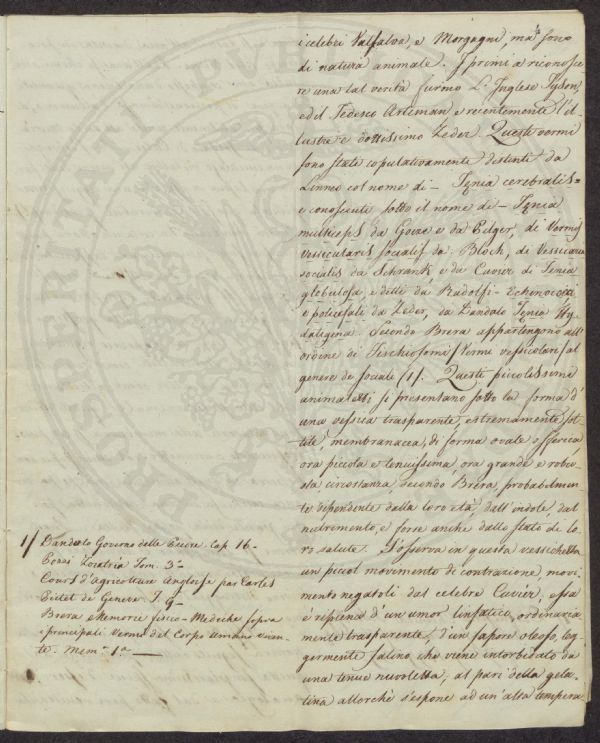 i celebri Valsalva, e Morgagni, ma sono
di natura animale. I primi a riconosce
re una tal verità furono L'Inglese Tyson,
ed il Tedesco Arteman e recentemente l'il-
lustre e dottissimo Zeder. Questi vermi
sono state copulativamente destinte da
Linneo col nome di - Tenia cerebralis =
e conosciute sotto il nome di - Tenia
multiceps da Goeze e da Bilger, di Vermis
vessicularis socialis da Bloch, di Vessicaria
socialis da Schrank e da Cuvier di Tenia
globulosa, e dette da Rudolfi - Echinococci
e policefali da Zeder, da Dandalo Tenia Hy
datigena. Secondo Brera appartengono all'
ordine di Fischiosomi / Verme vessicolari / al
genere de sociale (1). Questi piccolissimi
animaletti si presentano sotto la forma d'
una vessica trasparente, estremamente sot
tile, membranacea, di forma ovale o sferica,
ora piccola e tenuissima, ora grande e robu
sta, circostanza, secondo Brera, probabilmen
te dipendente dalla loro età, dall'indole, dal
nutrimento, e forse anche dallo stato de lo
ro salute. S'osserva in questa vessichetta
un piccol movimento di contrazione, movi
mento negatoli dal celebre Cuvier, essa
è ripiena d'un umor linfatico, ordinaria
mente trasparente, d'un sapore oleoso, leg
germente salino che viene intorbidato da
una tenue nuvoletta, al pari della gela
tina allorchè s'espone ad un'alta tempera
1/ Dandolo Governo delle Pecore Cap. 16 -
Pozzi Zoiatria Tom. 3°
Cours d'agriculture Angloise par Carles
Pictet de Geneve T. 9 -
Brera Memorie fisico-Mediche sopra
i principali Vermi del Corpo umano viven
te. Mem. 1a